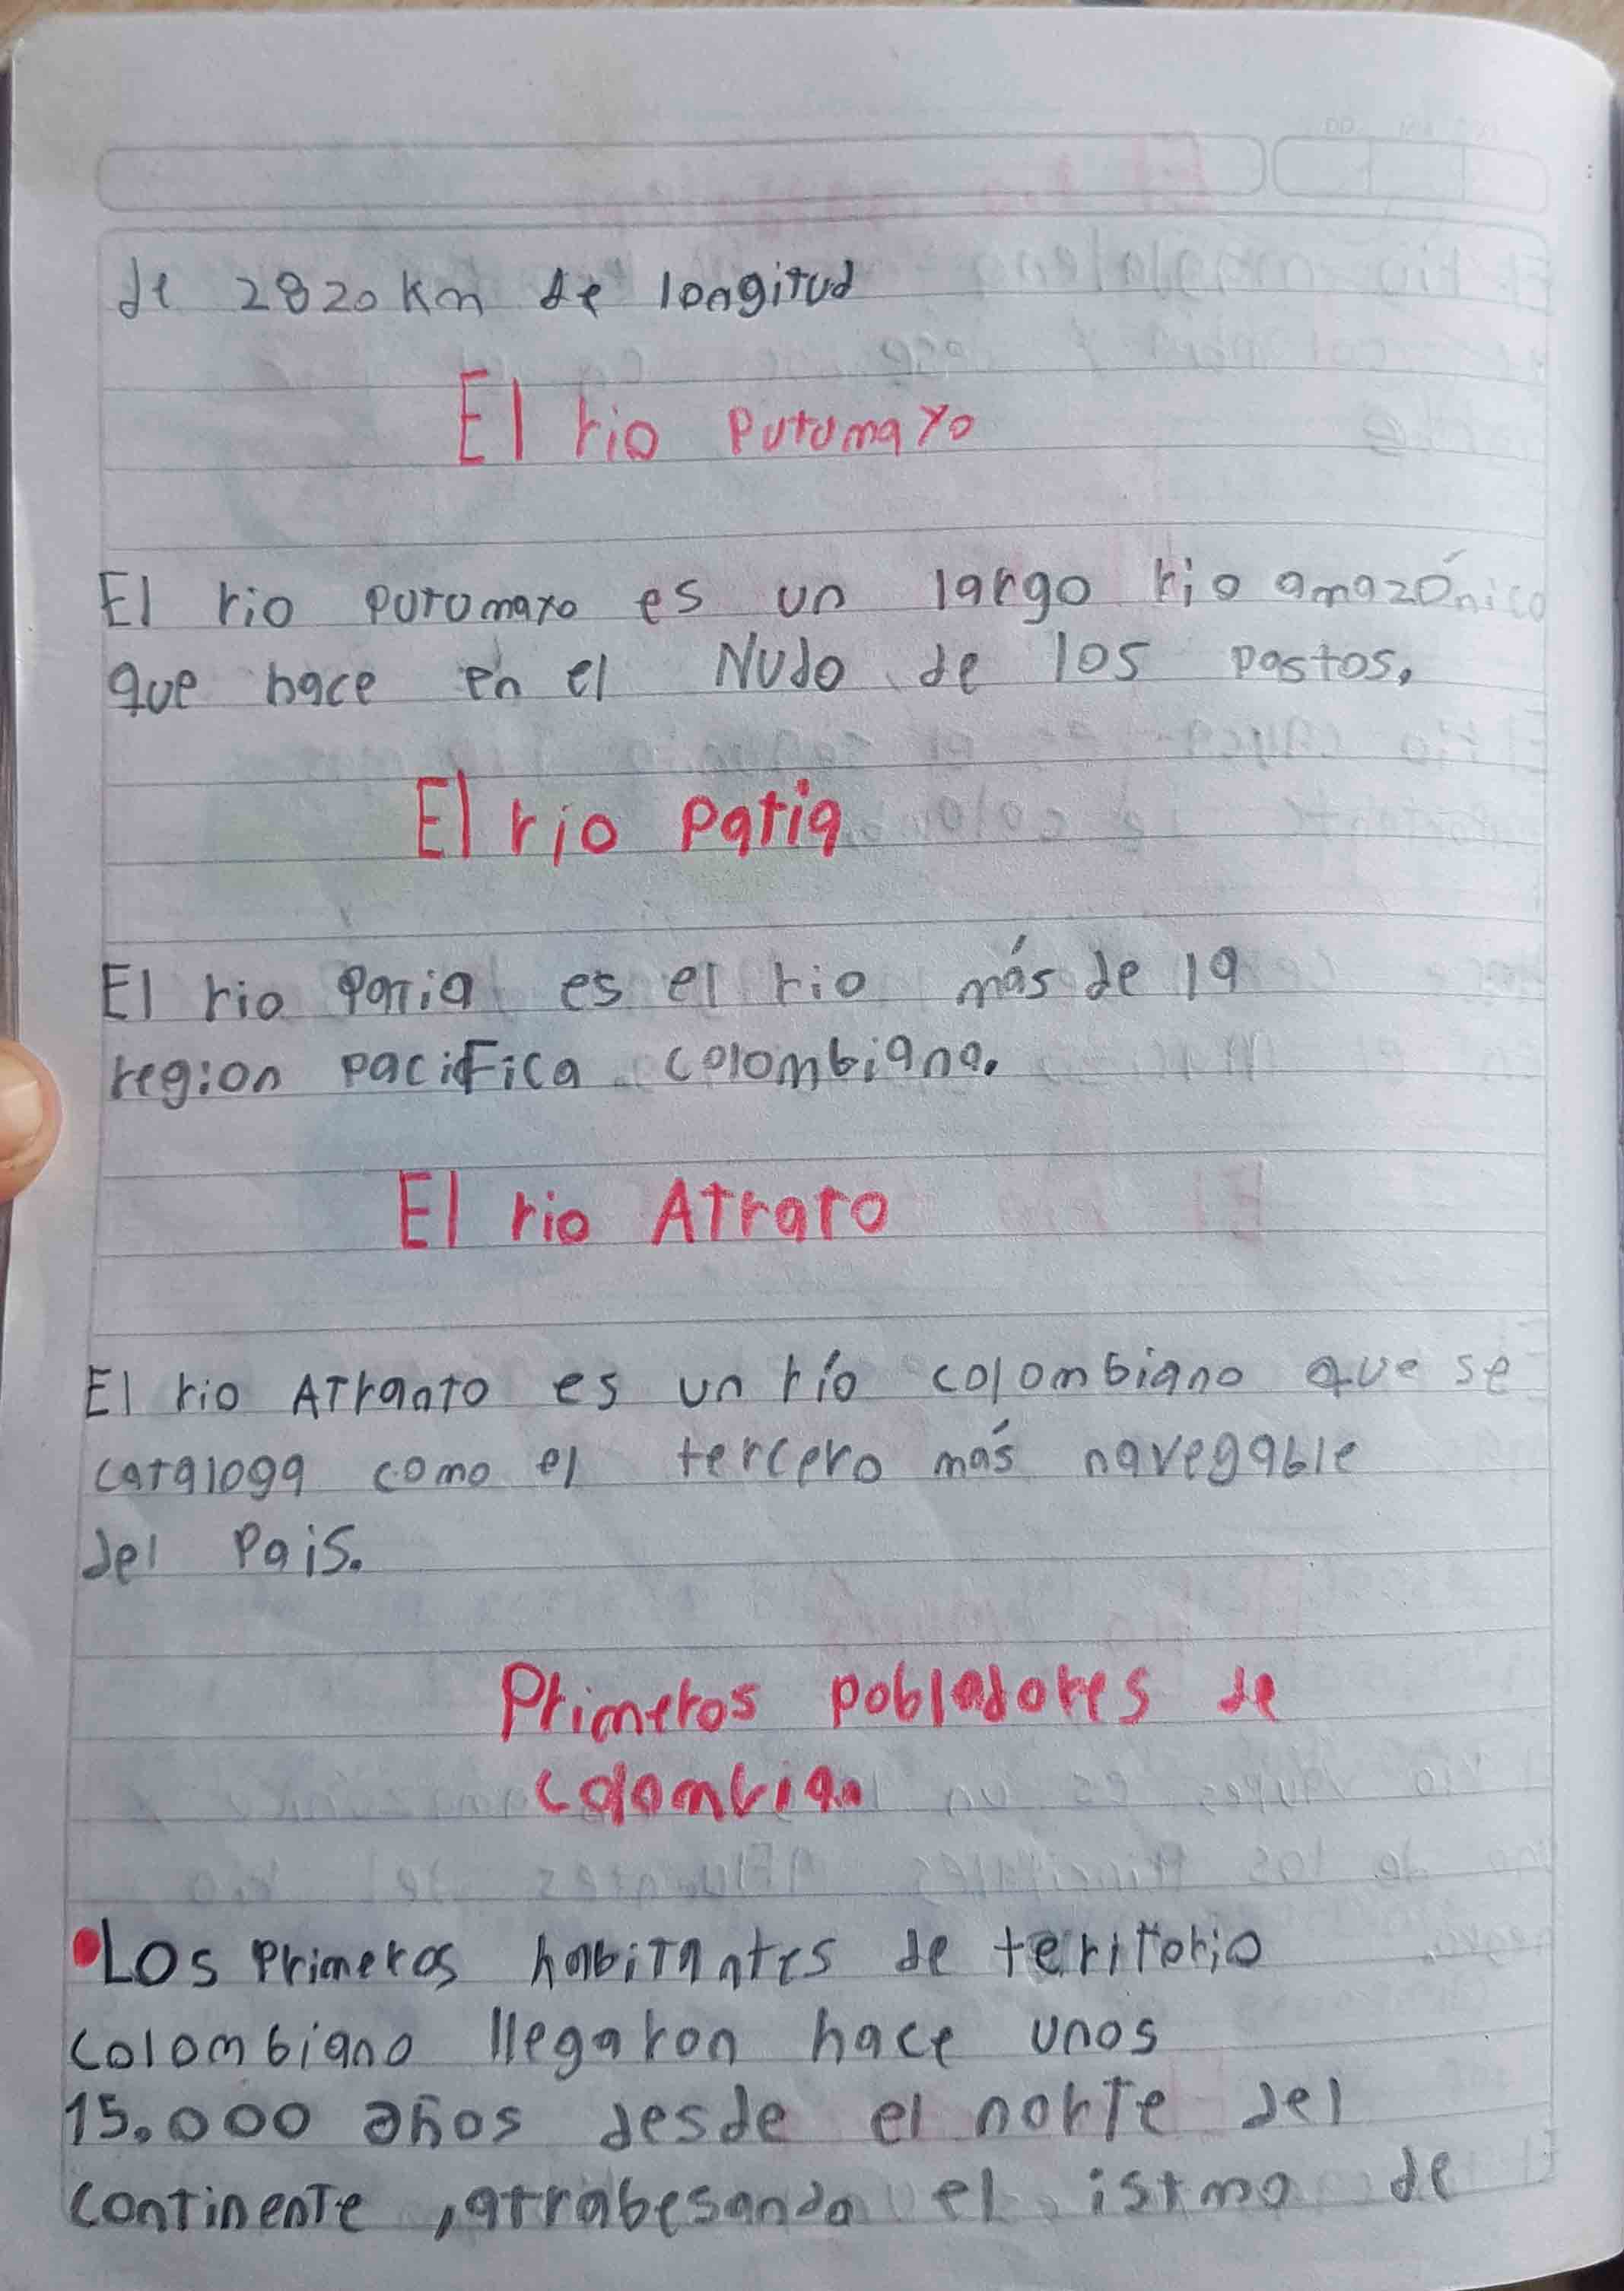 de 2820 km de longitud
El rio Putumayo
El rio putumayo es un largo rio amazónico
que nace en el Nudo de los pastos.
El rio patia
El rio patia es el rio más de la
region pacifica colombiana.
El rio Atrato
El rio Atranto es un río colombiano que se
cataloga como el tercero más navegable
del Pais.
Primeros pobladores de
colombia.
Los primeros habitantes de territorio
colombiano llegaron hace unos
15.000 años desde el norte del
continente, atrabesando el istmo de